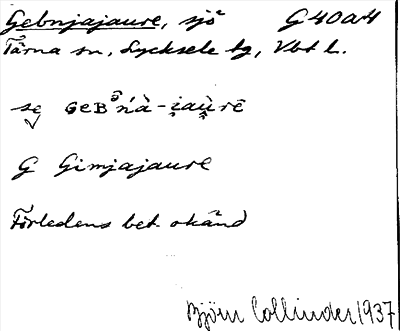 Gebnjajaure, sjö G40a4
Tärna sn, Lycksele lg, Vbt l.
se
G Gimjajaure
Förledens bet. okänd
Björn Collinder 1937